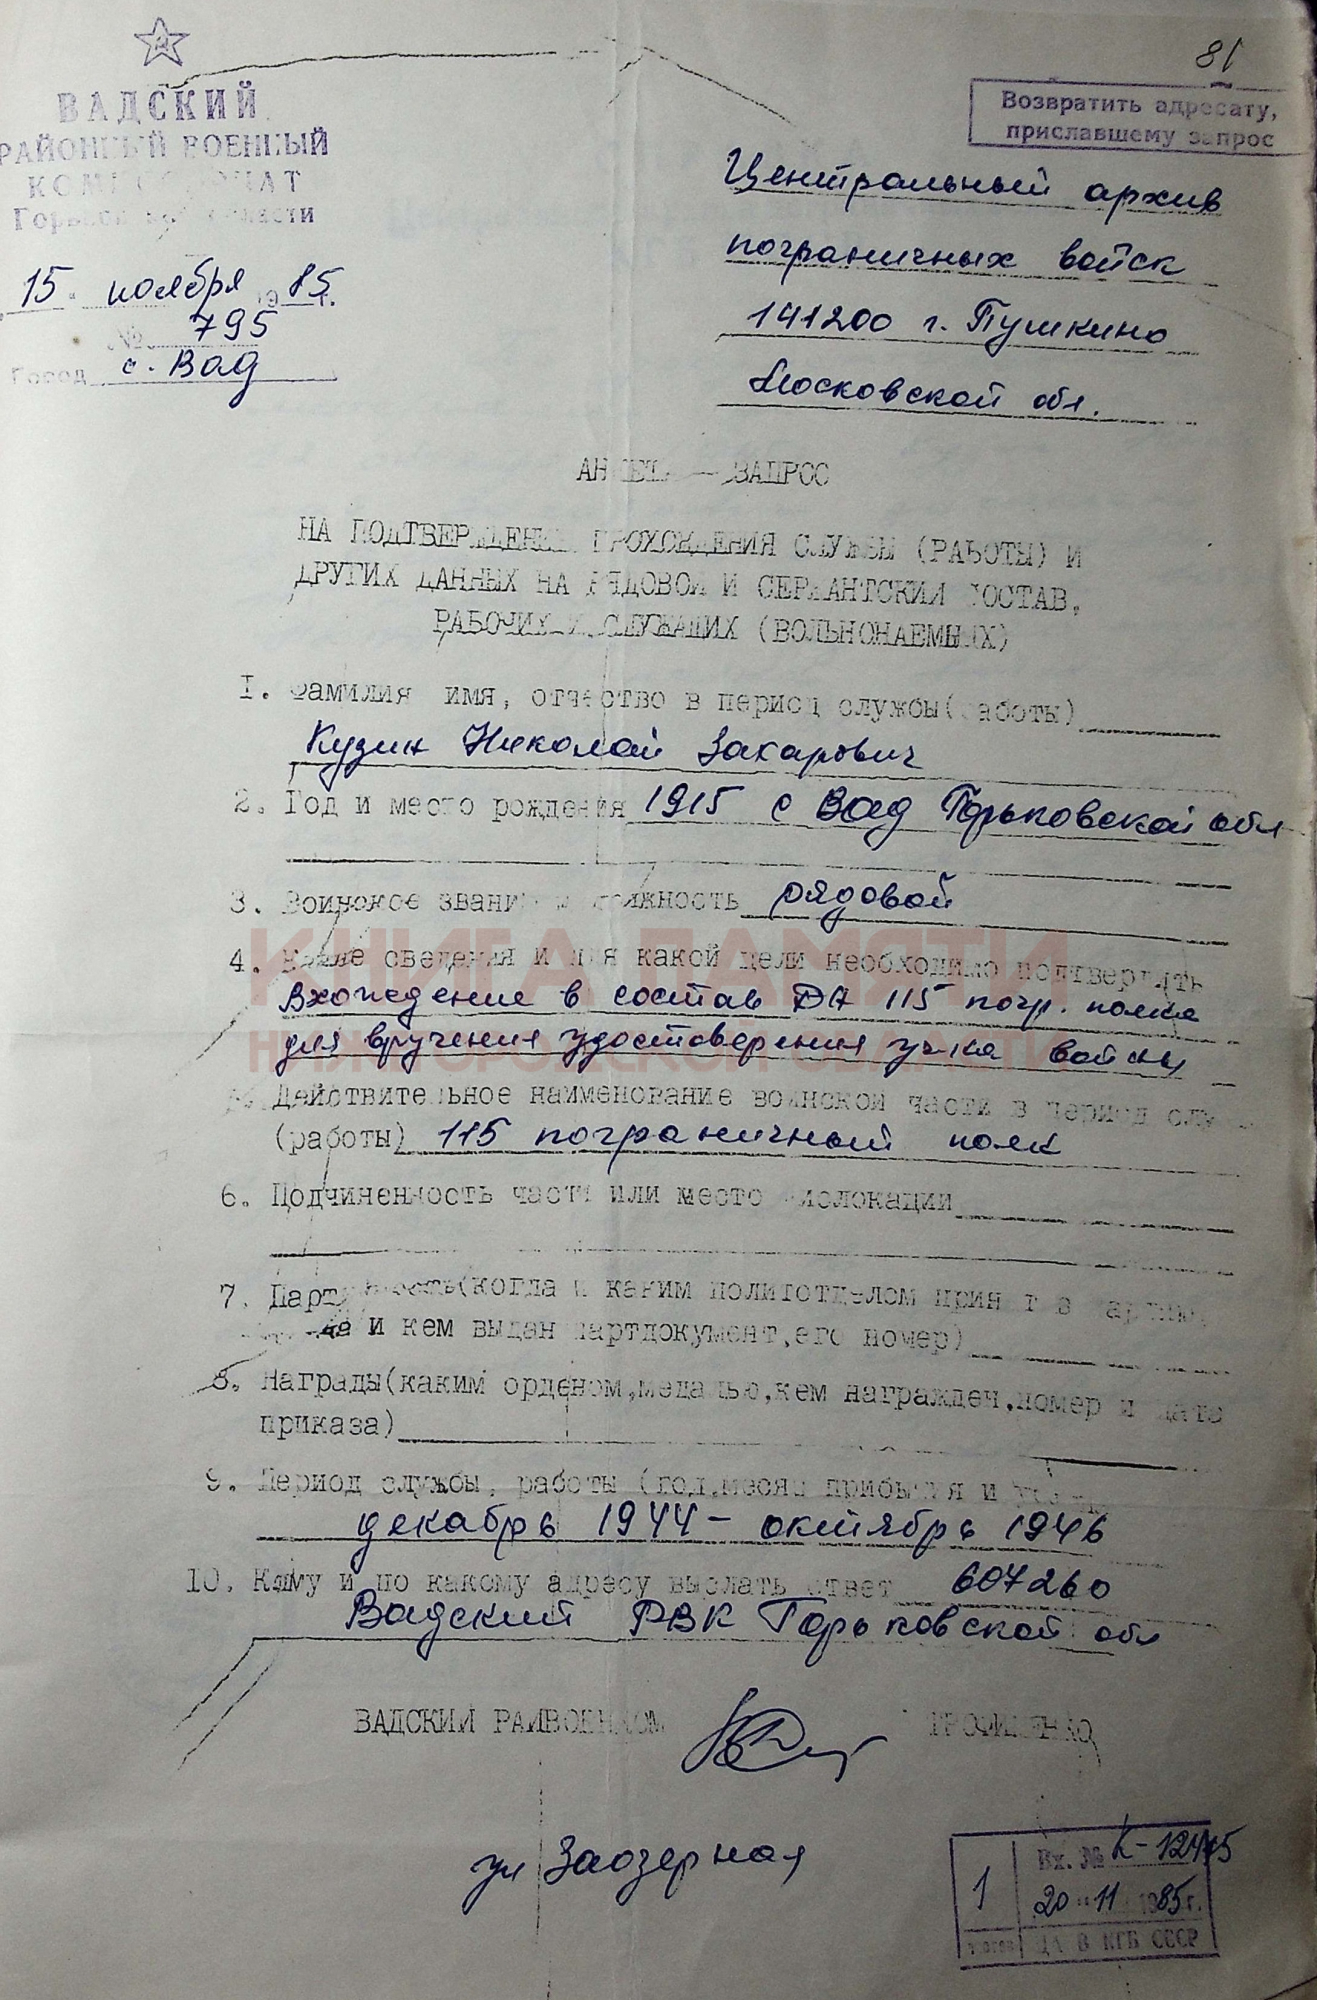 81
ВАДСКИЙ
РАЙОННЫЙ ВОЕННЫЙ
КОМИССАРИАТ
Горьковской области
Возвратить адресату,
приславшему запрос
15 " ноября 1985 г.
№ 795
Город с. Вад
Центральный архив
пограничных войск
141200 г. Пушкино
Московской обл.
АНКЕТА — ЗАПРОС
НА ПОДТВЕРЖДЕНИЕ ПРОХОЖДЕНИЯ СЛУЖБЫ (РАБОТЫ) И
ДРУГИХ ДАННЫХ НА РЯДОВОЙ И СЕРЖАНТСКИЙ СОСТАВ,
РАБОЧИХ И СЛУЖАЩИХ (ВОЛЬНОНАЕМНЫХ)
I. Фамилия имя, отчество в период службы(работы)
Кузин Николай Захарович
2. Год и место рождения 1915 с Вад Горьковской обл
3. Воинское звание и должность рядовой
4. Какие сведения и для какой цели необходимо подтвердить
Вхождение в состав ДА 115 погр. полка
для вручения удостоверения уч-ка войны
КНИГА ПАМЯТИ
НИЖЕГОРОДСКОЙ ОБЛАСТИ
5. Действительное наименование воинской части в период служ
(работы) 115 пограничный полк
6. Подчиненность части или место дислокации
7. Партийность(когда и каким политотделом принят в партию,
и кем выдан партдокумент,его номер)
8. Награды(каким орденом,медалью,кем награжден,номер и дата
приказа)
9. Период службы, работы (год,месяц прибытия и
декабрь 1944 – октябрь 1946
10. Кому и по какому адресу выслать ответ 607260
Вадский РВК Горьковской обл
ВАДСКИЙ РАЙВОЕНКОМ ТРОФИМЕНКО
ул Заозерная
1
Вх. № К-12475
20 " 11 1985г.
ЦА В КГБ СССР